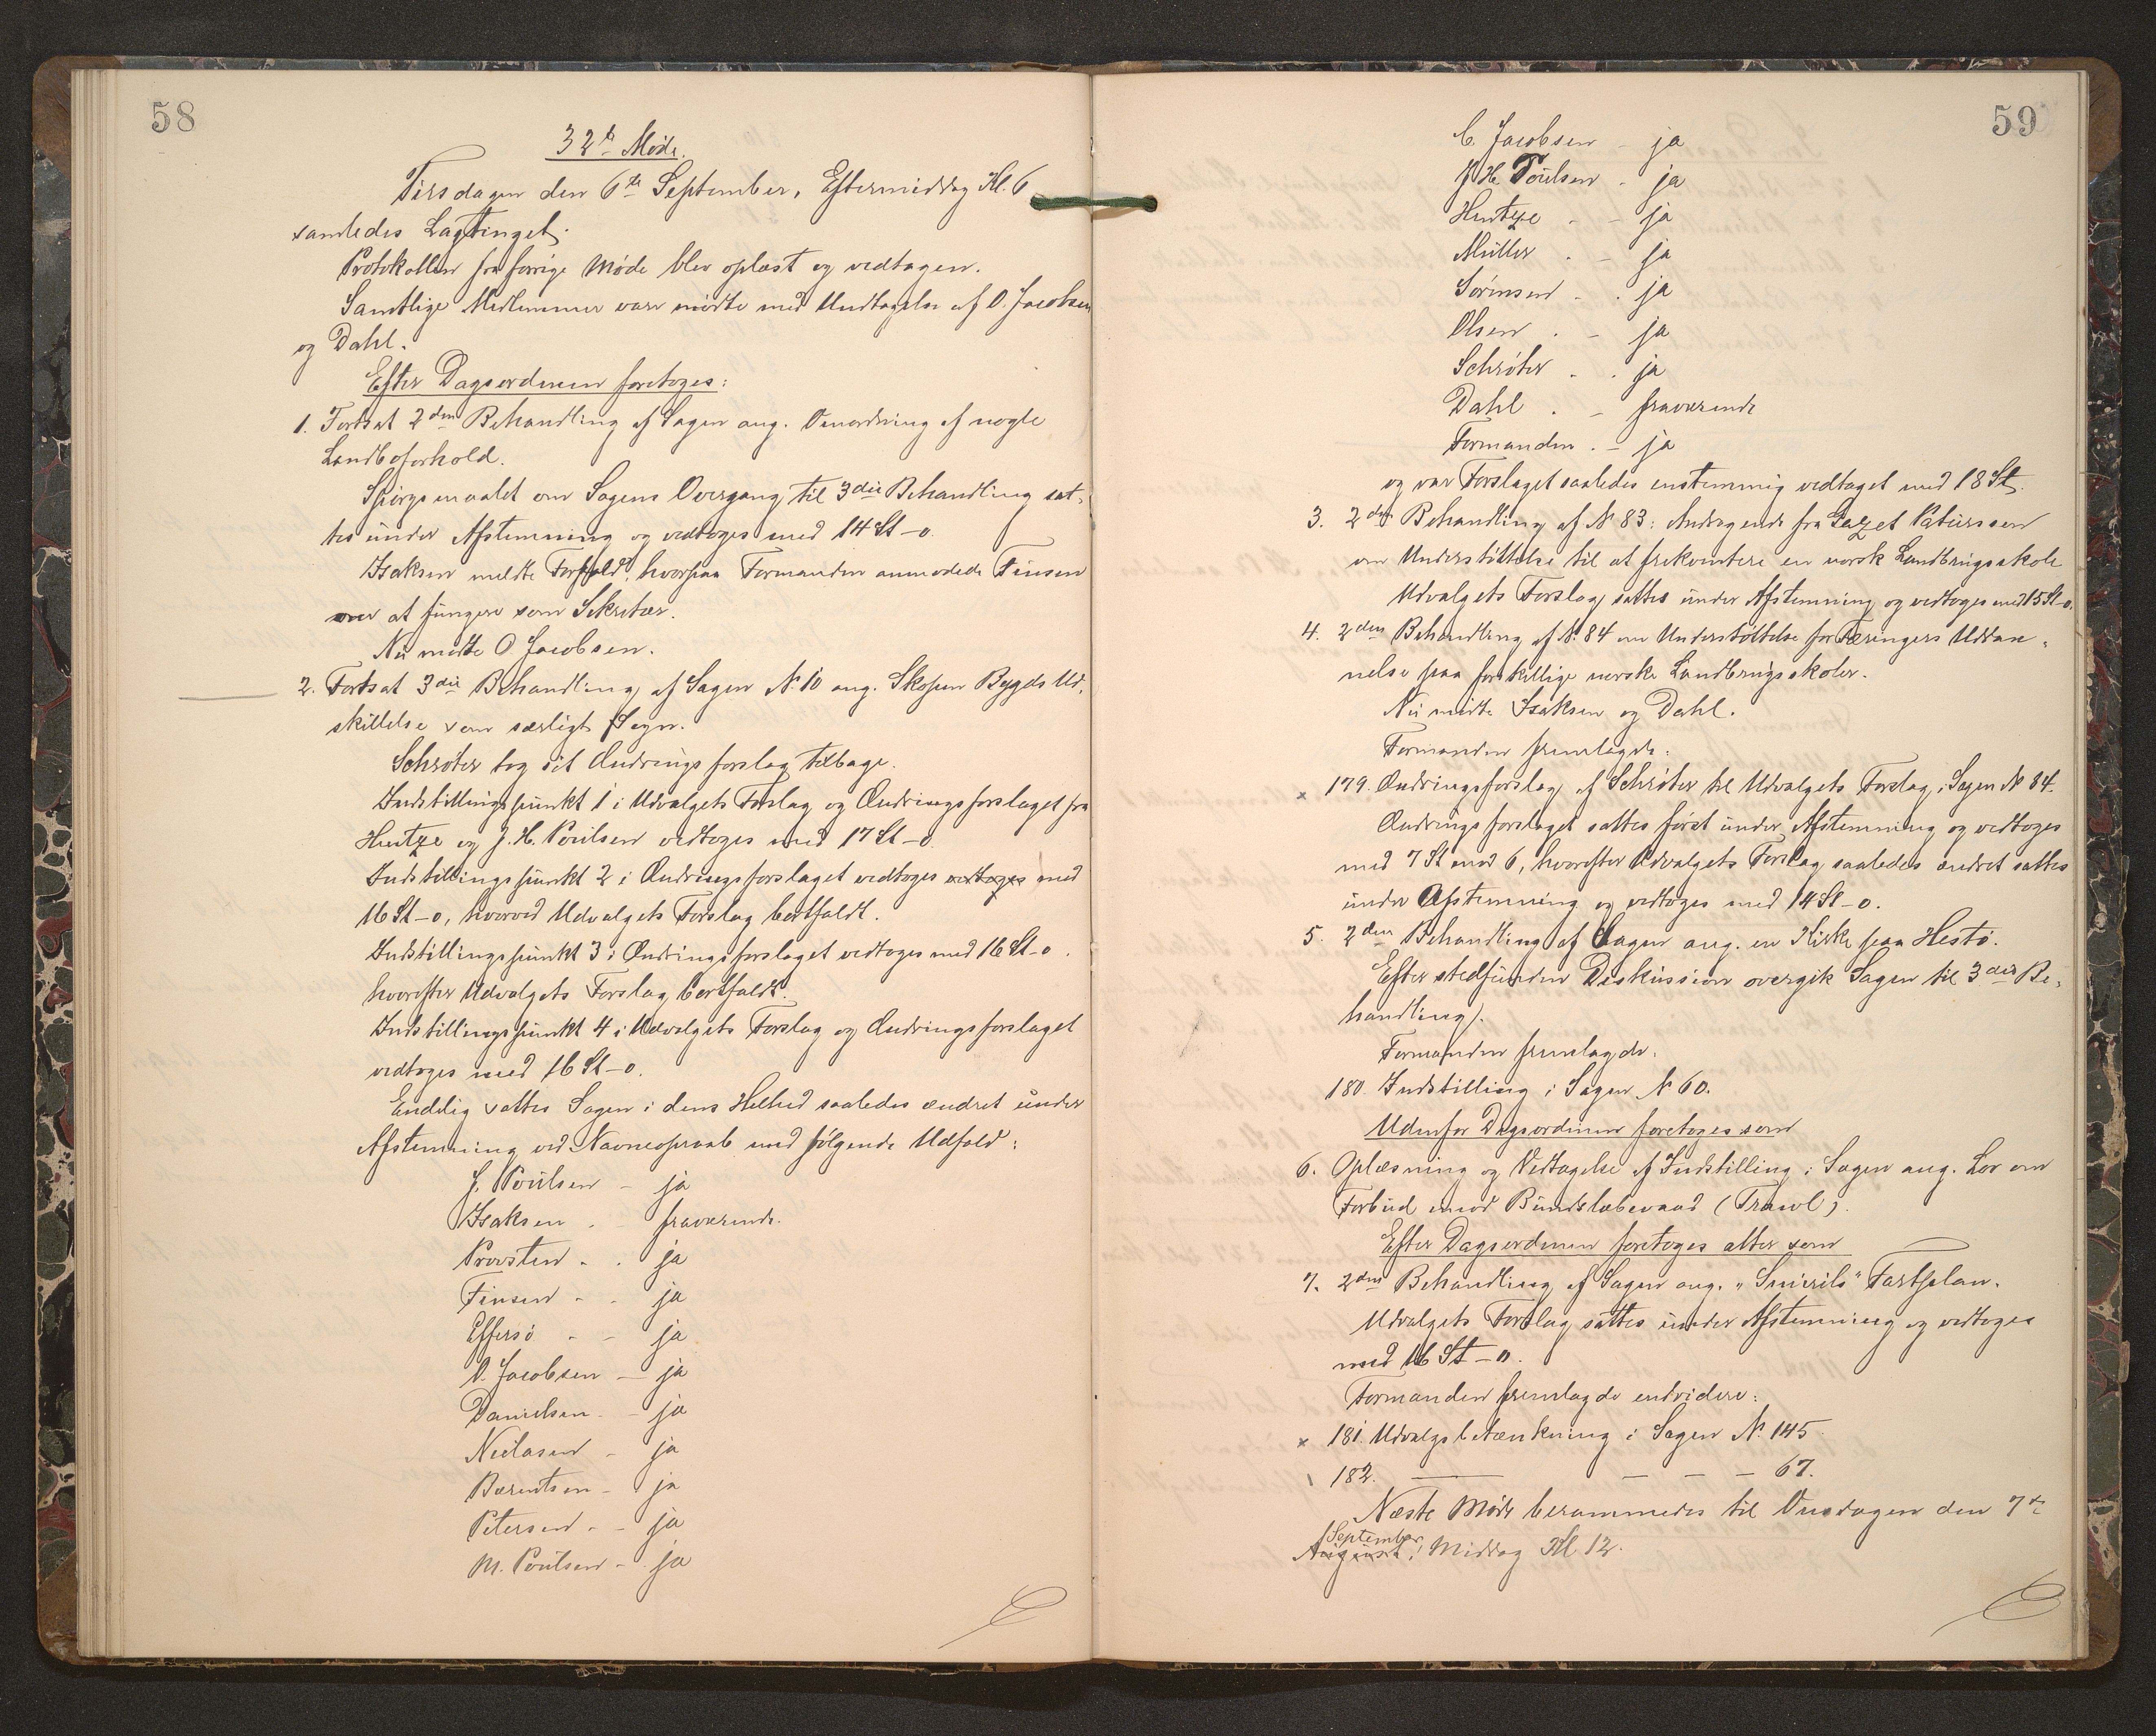 58
32te Møde.
Tirsdagen den 6te September, Eftermiddag Kl. 6
samledes Lagtinget.
Protokollen fra forrige Møde blev oplæst og vedtagen.
Samtlige Medlemmer vare mødte med Undtagelse af O. Jacobsen
og Dahl.
Efter Dagsordenen foretoges:
1. Fortsat 2den Behandling af Sagen ang. Omordning af nogle
Landboforhold.
Spørgsmaalet om Sagens Overgang til 3die Behandling sat-
tes under Afstemning og vedtoges med 14 St – 0.
Isaksen meldte Forfald, hvorpaa Formanden anmodede Finsen
om at fungere som Sekretær.
Nu mødte O. Jacobsen.
2. Fortsat 3die Behandling af Sagen N. 10 ang. Skopun Bygds Ud-
skillelse som særligt Sogn.
Schrøter tog sit Ændringsforslag tilbage.
Indstillingspunkt 1 i Udvalgets Forslag og Ændringsforslaget fra
Hentze og J. H. Poulsen vedtoges med 17 St – 0.
Indstillingspunkt 2 i Ændringsforslaget vedtoges vedtoges med
16 St – 0, hvorved Udvalgets Forslag bortfaldt.
Indstillingspunkt 3 i Ændringsforslaget vedtoges med 16 St – 0.
hvorefter Udvalgets Forslag bortfaldt.
Indstillingspunkt 4 i Udvalgets Forslag og Ændringsforslaget
vedtoges med 16 St – 0.
Endelig sattes Sagen i dens Helhed saaledes ændret under
Afstemning ved Navneopraab med følgende Udfald:
J. Poulsen – ja
Isaksen . fraværende.
Provsten - . ja
Finsen - - ja
Effersö - - ja
O. Jacobsen – ja
Danielsen - - ja
Nielasen - ja
Bærentsen - ja
Petersen - - ja
M. Poulsen - - ja
59
C. Jacobsen - ja
J. H. Poulsen - ja
Hentze - - ja
Müller . - ja
Sørensen - . ja
Olsen . - ja
Schrøter . . ja
Dahl . - fraværende
Formanden . - ja
og var Forslaget saaledes enstemmig vedtaget med 18 St.
3. 2den Behandling af N. 83: Andragende fra Gazet Patursson
om Understøttelse til at frekventere en norsk Landbrugsskole
Udvalgets Forslag sattes under Afstemning og vedtoges med 15 St – 0.
4. 2den Behandling af N. 84 om Understøttelse for Færingers Uddan-
nelse paa forskillige norske Landbrugsskoler.
Nu mødte Isaksen og Dahl.
Formanden fremlagde:
x 179. Ændringsforslag af Schrøter til Udvalgets Forslag i Sagen N. 84.
Ændringsforslaget sattes først under Afstemning og vedtoges
med 7 St mod 6, hvorefter Udvalgets Forslag saaledes ændret sattes
under Afstemning og vedtoges med 14 St – 0.
5. 2den Behandling af Sagen ang. en Kirke paa Hestø.
Efter stedfunden Diskussion overgik Sagen til 3die Be-
handling.
Formanden fremlagde:
180. Indstilling i Sagen N. 60.
Udenfor Dagsordenen foretoges som
6. Oplæsning og Vedtagelse af Indstilling i Sagen ang. Lov om
Forbud imod Bundslæbevaad (Trawl).
Efter Dagsordenen foretoges atter som
7. 2den Behandling af Sagen ang. „Smirils“ Fartplan.
Udvalgets Forslag sattes under Afstemning og vedtoges
med 16 St – 0.
Formanden fremlagde endvidere:
x 181. Udvalgsbetænkning i Sagen N. 145.
\ 182. — — — — 67.
Næste Møde berammedes til Onsdagen den 7de
September
August, Middag Kl. 12.